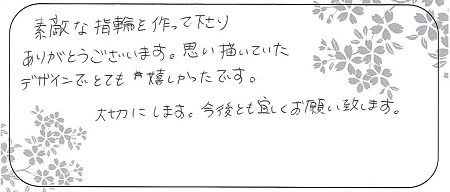 素敵な指輪を作って下さり
ありがとうございます。思い描いていた
デザインでとても嬉しかったです。
大切にします。今後とも宜しくお願い致します。